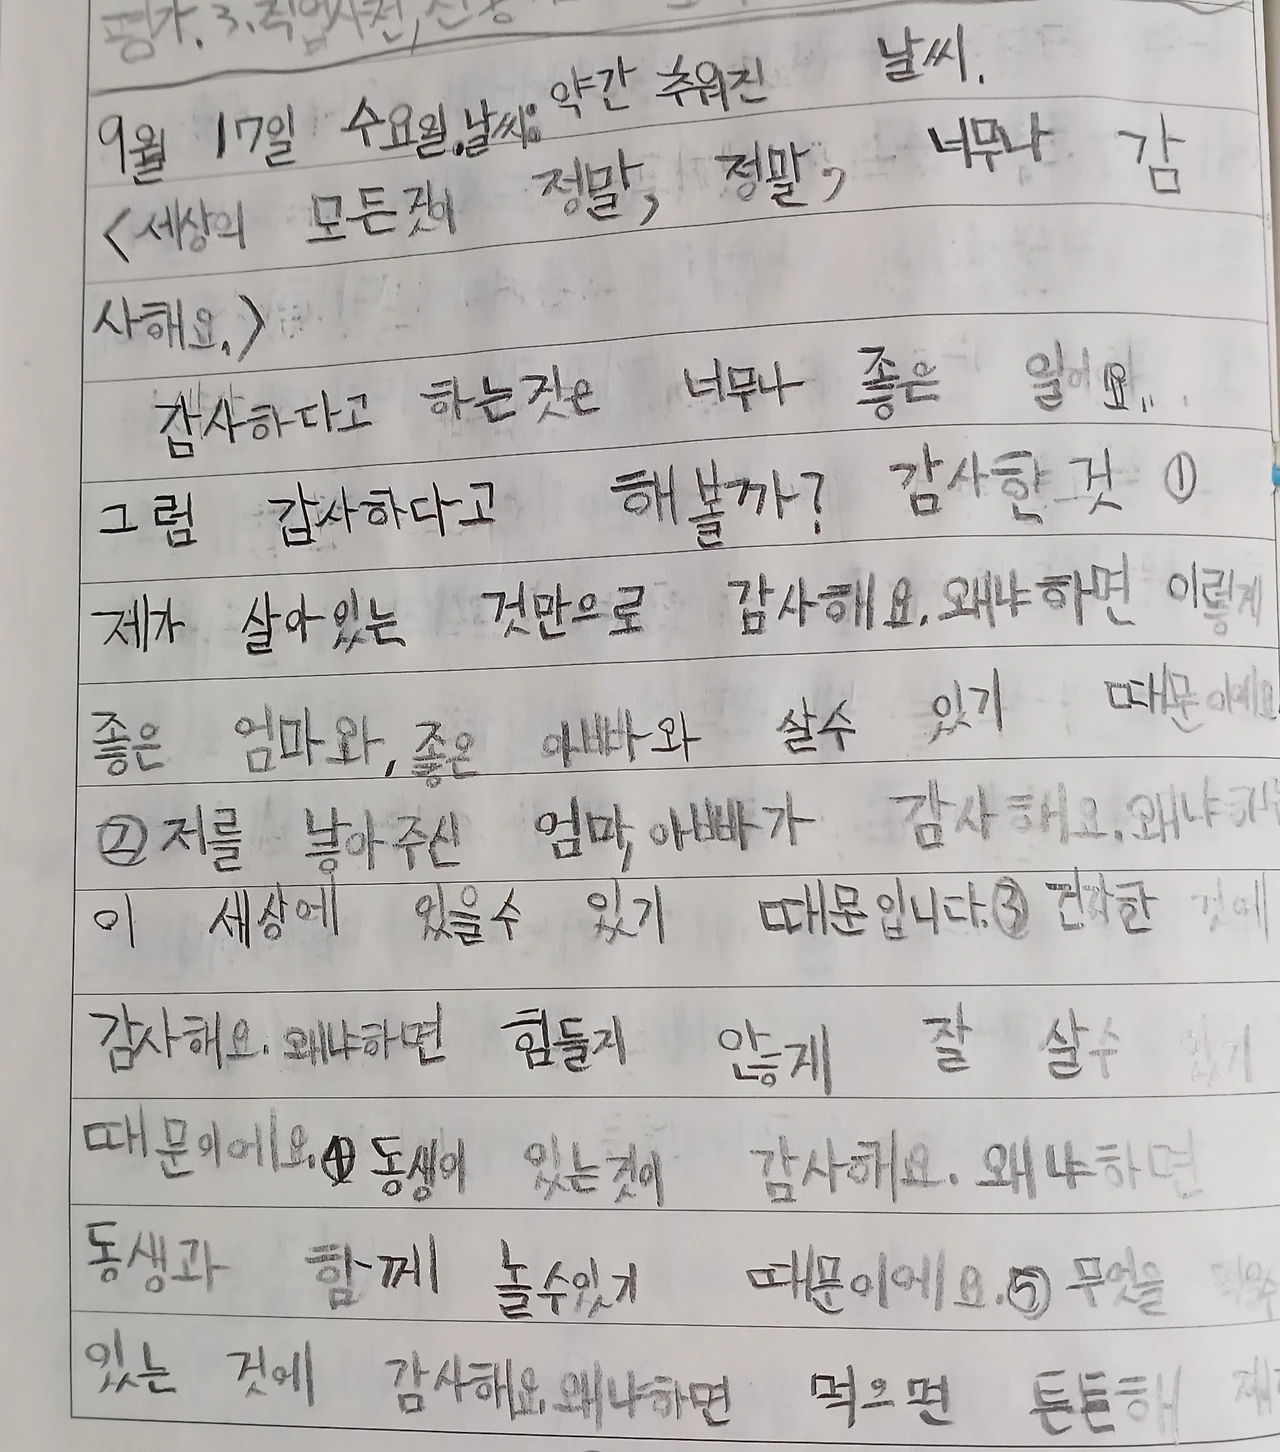 평가. 3. 직업사전,
9월 17일 수요일.날씨: 약간 추워진 날씨.
<세상의 모든것이 정말, 정말, 너무나 감
사해요.>
감사하다고 하는것은 너무나 좋은 일이
그럼 감사하다고 해볼까? 감사한 것 ①
제가 살아있는 것만으로 감사해요. 왜냐하면 이렇게
좋은 엄마와, 좋은 아빠와 살수 있기 때문이에요
② 저를 낳아주신 엄마, 아빠가 감사해요. 왜냐하
이 세상에 있을수 있기 때문입니다. ③ 건강한 것에
감사해요. 왜냐하면 힘들지 않게 잘 살수 있기
때문이에요. ④ 동생이 있는것이 감사해요. 왜냐하면
동생과 함께 놀수있기 때문이에요. ⑤ 무엇을
있는 것에 감사해요. 왜냐하면 먹으면 튼튼해